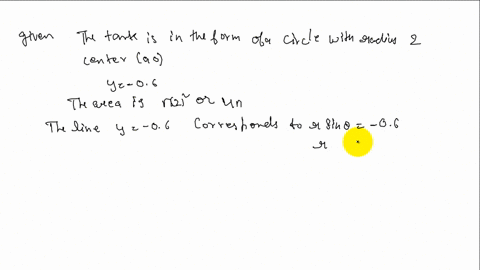 given The tank is in the form of a circle with radius 2
center (0,0)
y=-0.6
The area is π(2)² or 4π
The line y=-0.6 Corresponds to r sinθ = -0.6
r